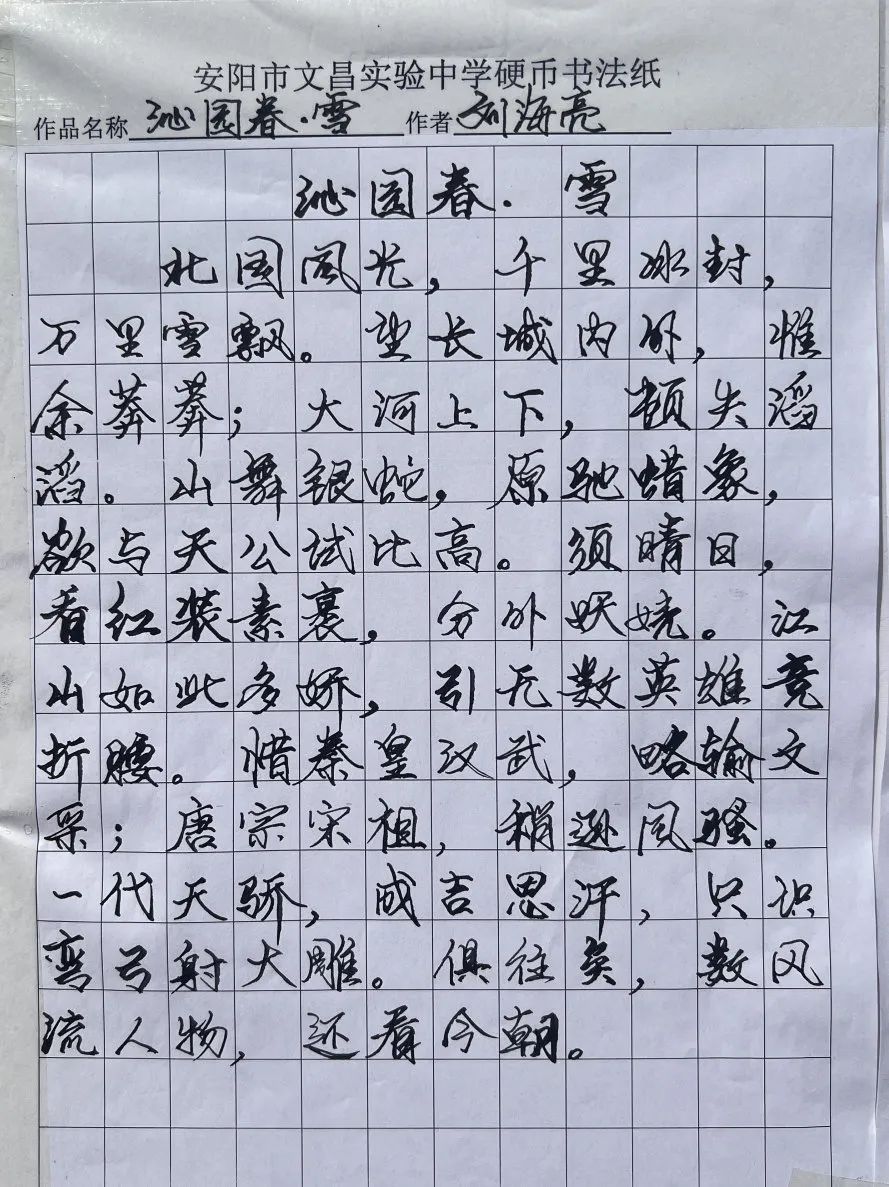 安阳市文昌实验中学硬币书法纸
作品名称 沁园春·雪 作者 刘海亮
沁园春·雪
北国风光，千里冰封，
万里雪飘。望长城内外，惟
余莽莽；大河上下，顿失滔
滔。山舞银蛇，原驰蜡象，
欲与天公试比高。须晴日，
看红装素裹，分外妖娆。江
山如此多娇，引无数英雄竞
折腰。惜秦皇汉武，略输文
采；唐宗宋祖，稍逊风骚。
一代天骄，成吉思汗，只识
弯弓射大雕。俱往矣，数风
流人物，还看今朝。